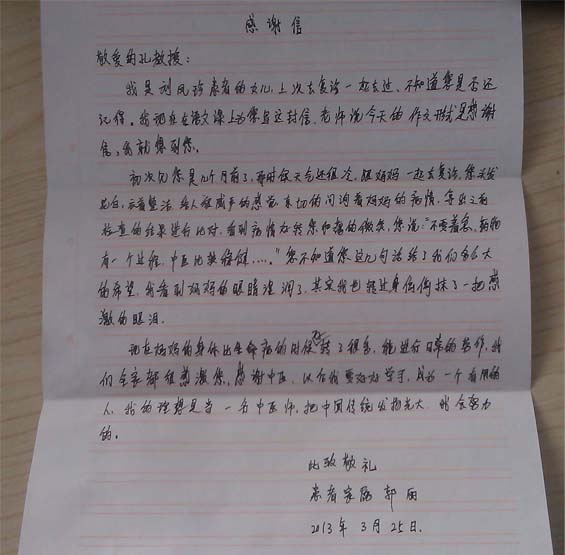 感谢信
敬爱的孔教授:
我是刘凤珍患者的女儿,上次去复诊一起去过、不知道您是否还
记得。我现在在语文课上为您写这封信,老师说今天的作文形式是感谢
信,我就想到您。
初次见您是几个月前了,那时候天气还很冷,跟妈妈一起去复诊,您头发
花白,衣着整洁 给人很威严的感觉 亲切的问询着妈妈的病情,拿出之前
检查的结果进行比对,看到病情好转您和蔼的微笑,您说:“不要着急,药物
有一个过程,中医比较稳健....。”您不知道您这几句话给了我们多么大
的希望,我看到妈妈的眼睛湿润了,其实我也转过身偷偷抹了一把感
激的眼泪。
现在妈妈的身体比生命病的时候好转了很多,能进行日常的劳作,我
们全家都很感激您,感谢中医,以后我要好好学习,成为一个有用的
人,我的理想是当一名中医师,把中国传统发扬光大,我会努力
的。
此致敬礼
患者家属 郭丽
2013年3月25日.